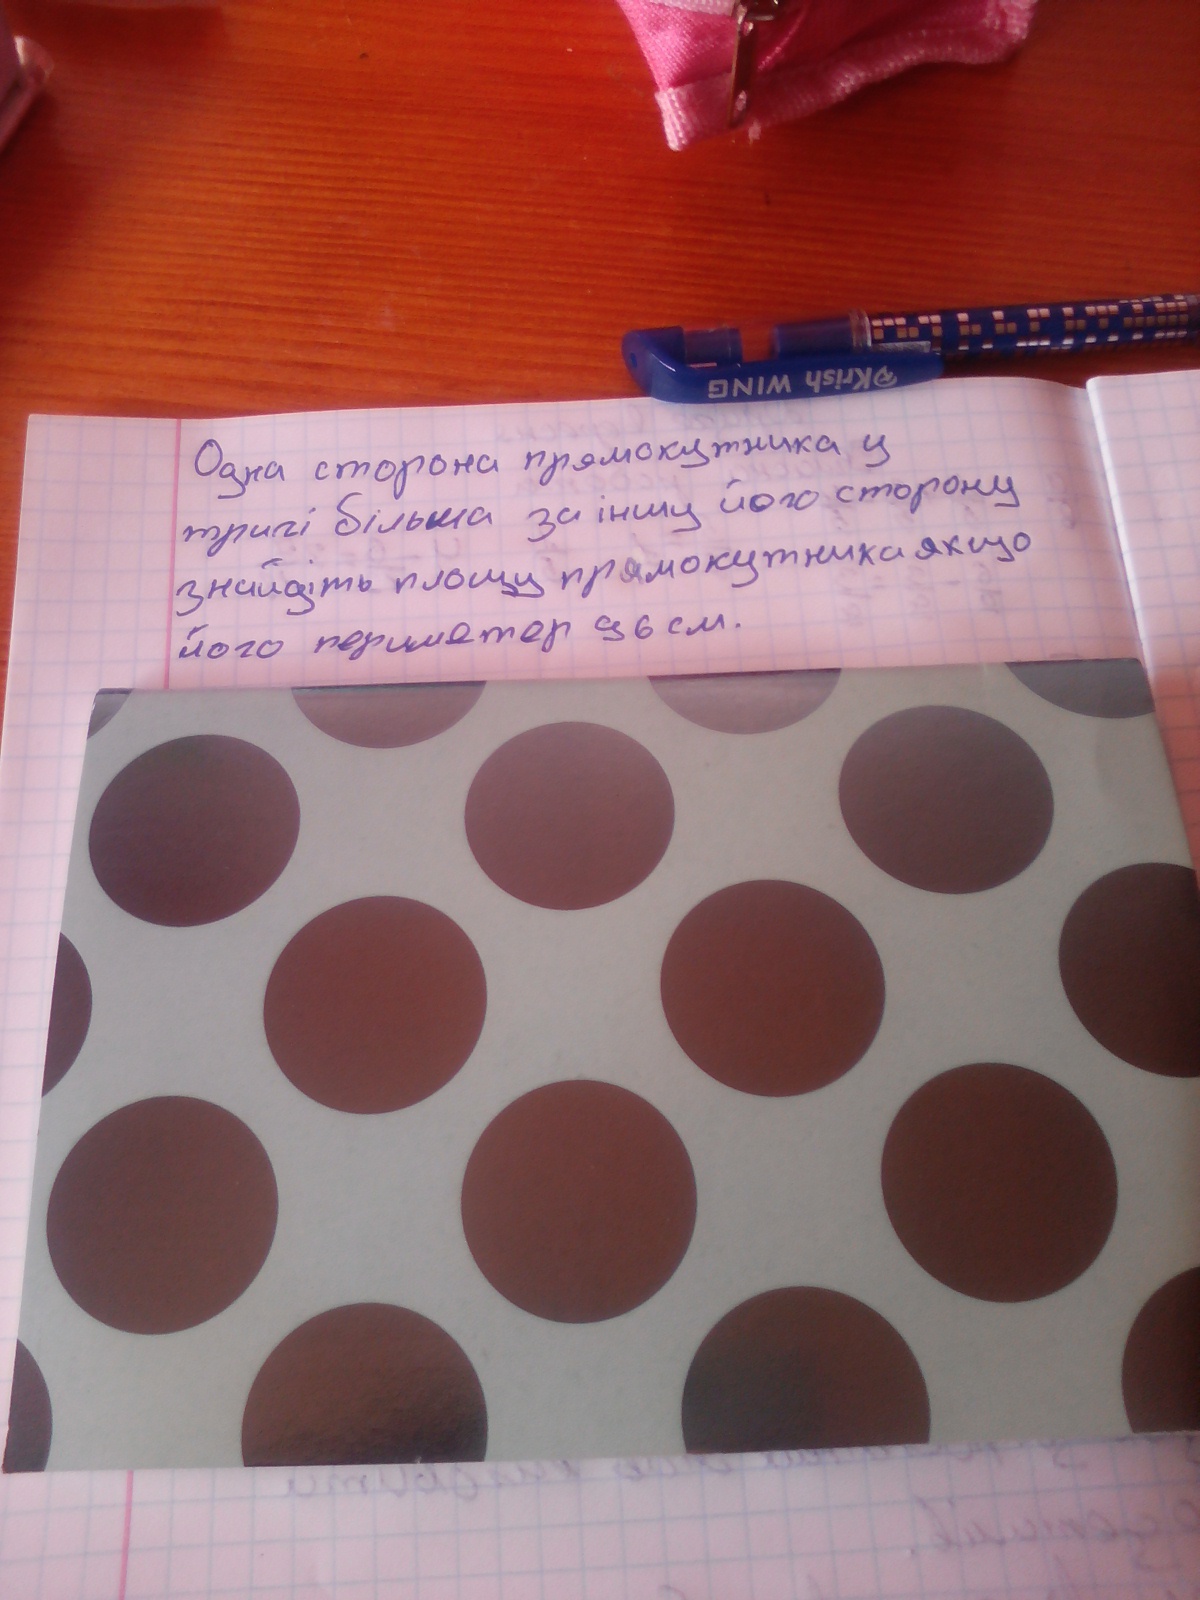 Krish WING
Одна сторона прямокутника у
тричі більша за іншу його сторону
знайдіть площу прямокутника якщо
його периметер 96 см.